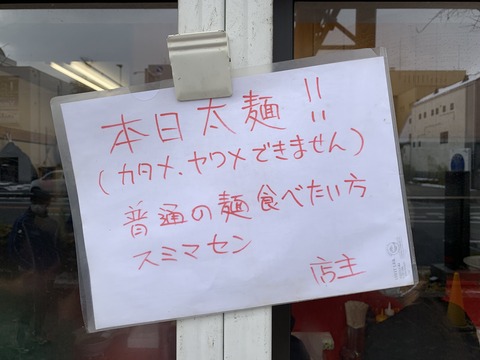 本日太麺!!
(カタメ、ヤワメできません)
普通の麺食べたい方
スミマセン
店主